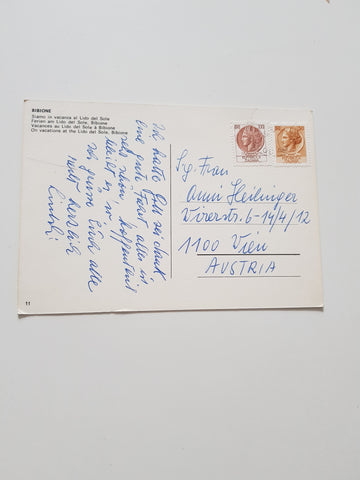 BIBIONE
Siamo in vacanza al Lido del Sole
Ferien am Lido del Sole, Bibione
Vacances au Lido del Sole à Bibione
On vacations at the Lido del Sole, Bibione
Wir hatten Gott sei dank
eine gute Fahrt alles ist
sehr schön, hoffentlich
bleibt es so
Wir grüssen Euch alle
recht herzlich
Sg. Frau
Anni Heilinger
6-14/4/12
1100 Wien
AUSTRIA
11